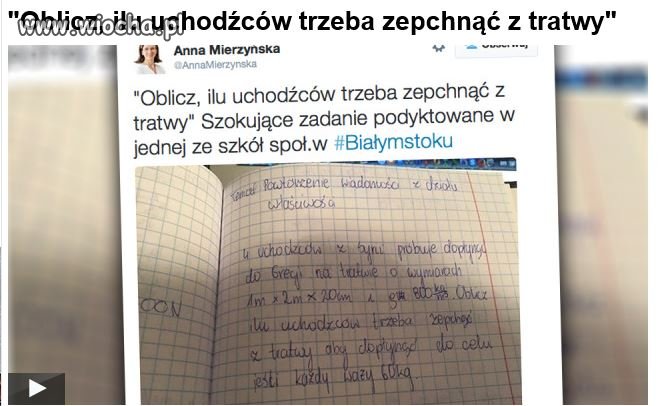 "Oblicz, ilu uchodźców trzeba zepchnąć z tratwy"
www.wiocha.pl
Anna Mierzyńska
@AnnaMierzynska
Obserwuj
"Oblicz, ilu uchodźców trzeba zepchnąć z
tratwy" Szokujące zadanie podyktowane w
jednej ze szkół społ.w #Białymstoku
Temat: Powtórzenie wiadomości z działu
właściwości
4 uchodźców z Syrii próbuje dopłynąć
do Grecji na tratwie o wymiarach
1m × 2m × 20cm i 800 kg/m3. Oblicz
ilu uchodźców trzeba zepchnąć
z tratwy aby dopłynąć do celu
jeśli każdy waży 60kg